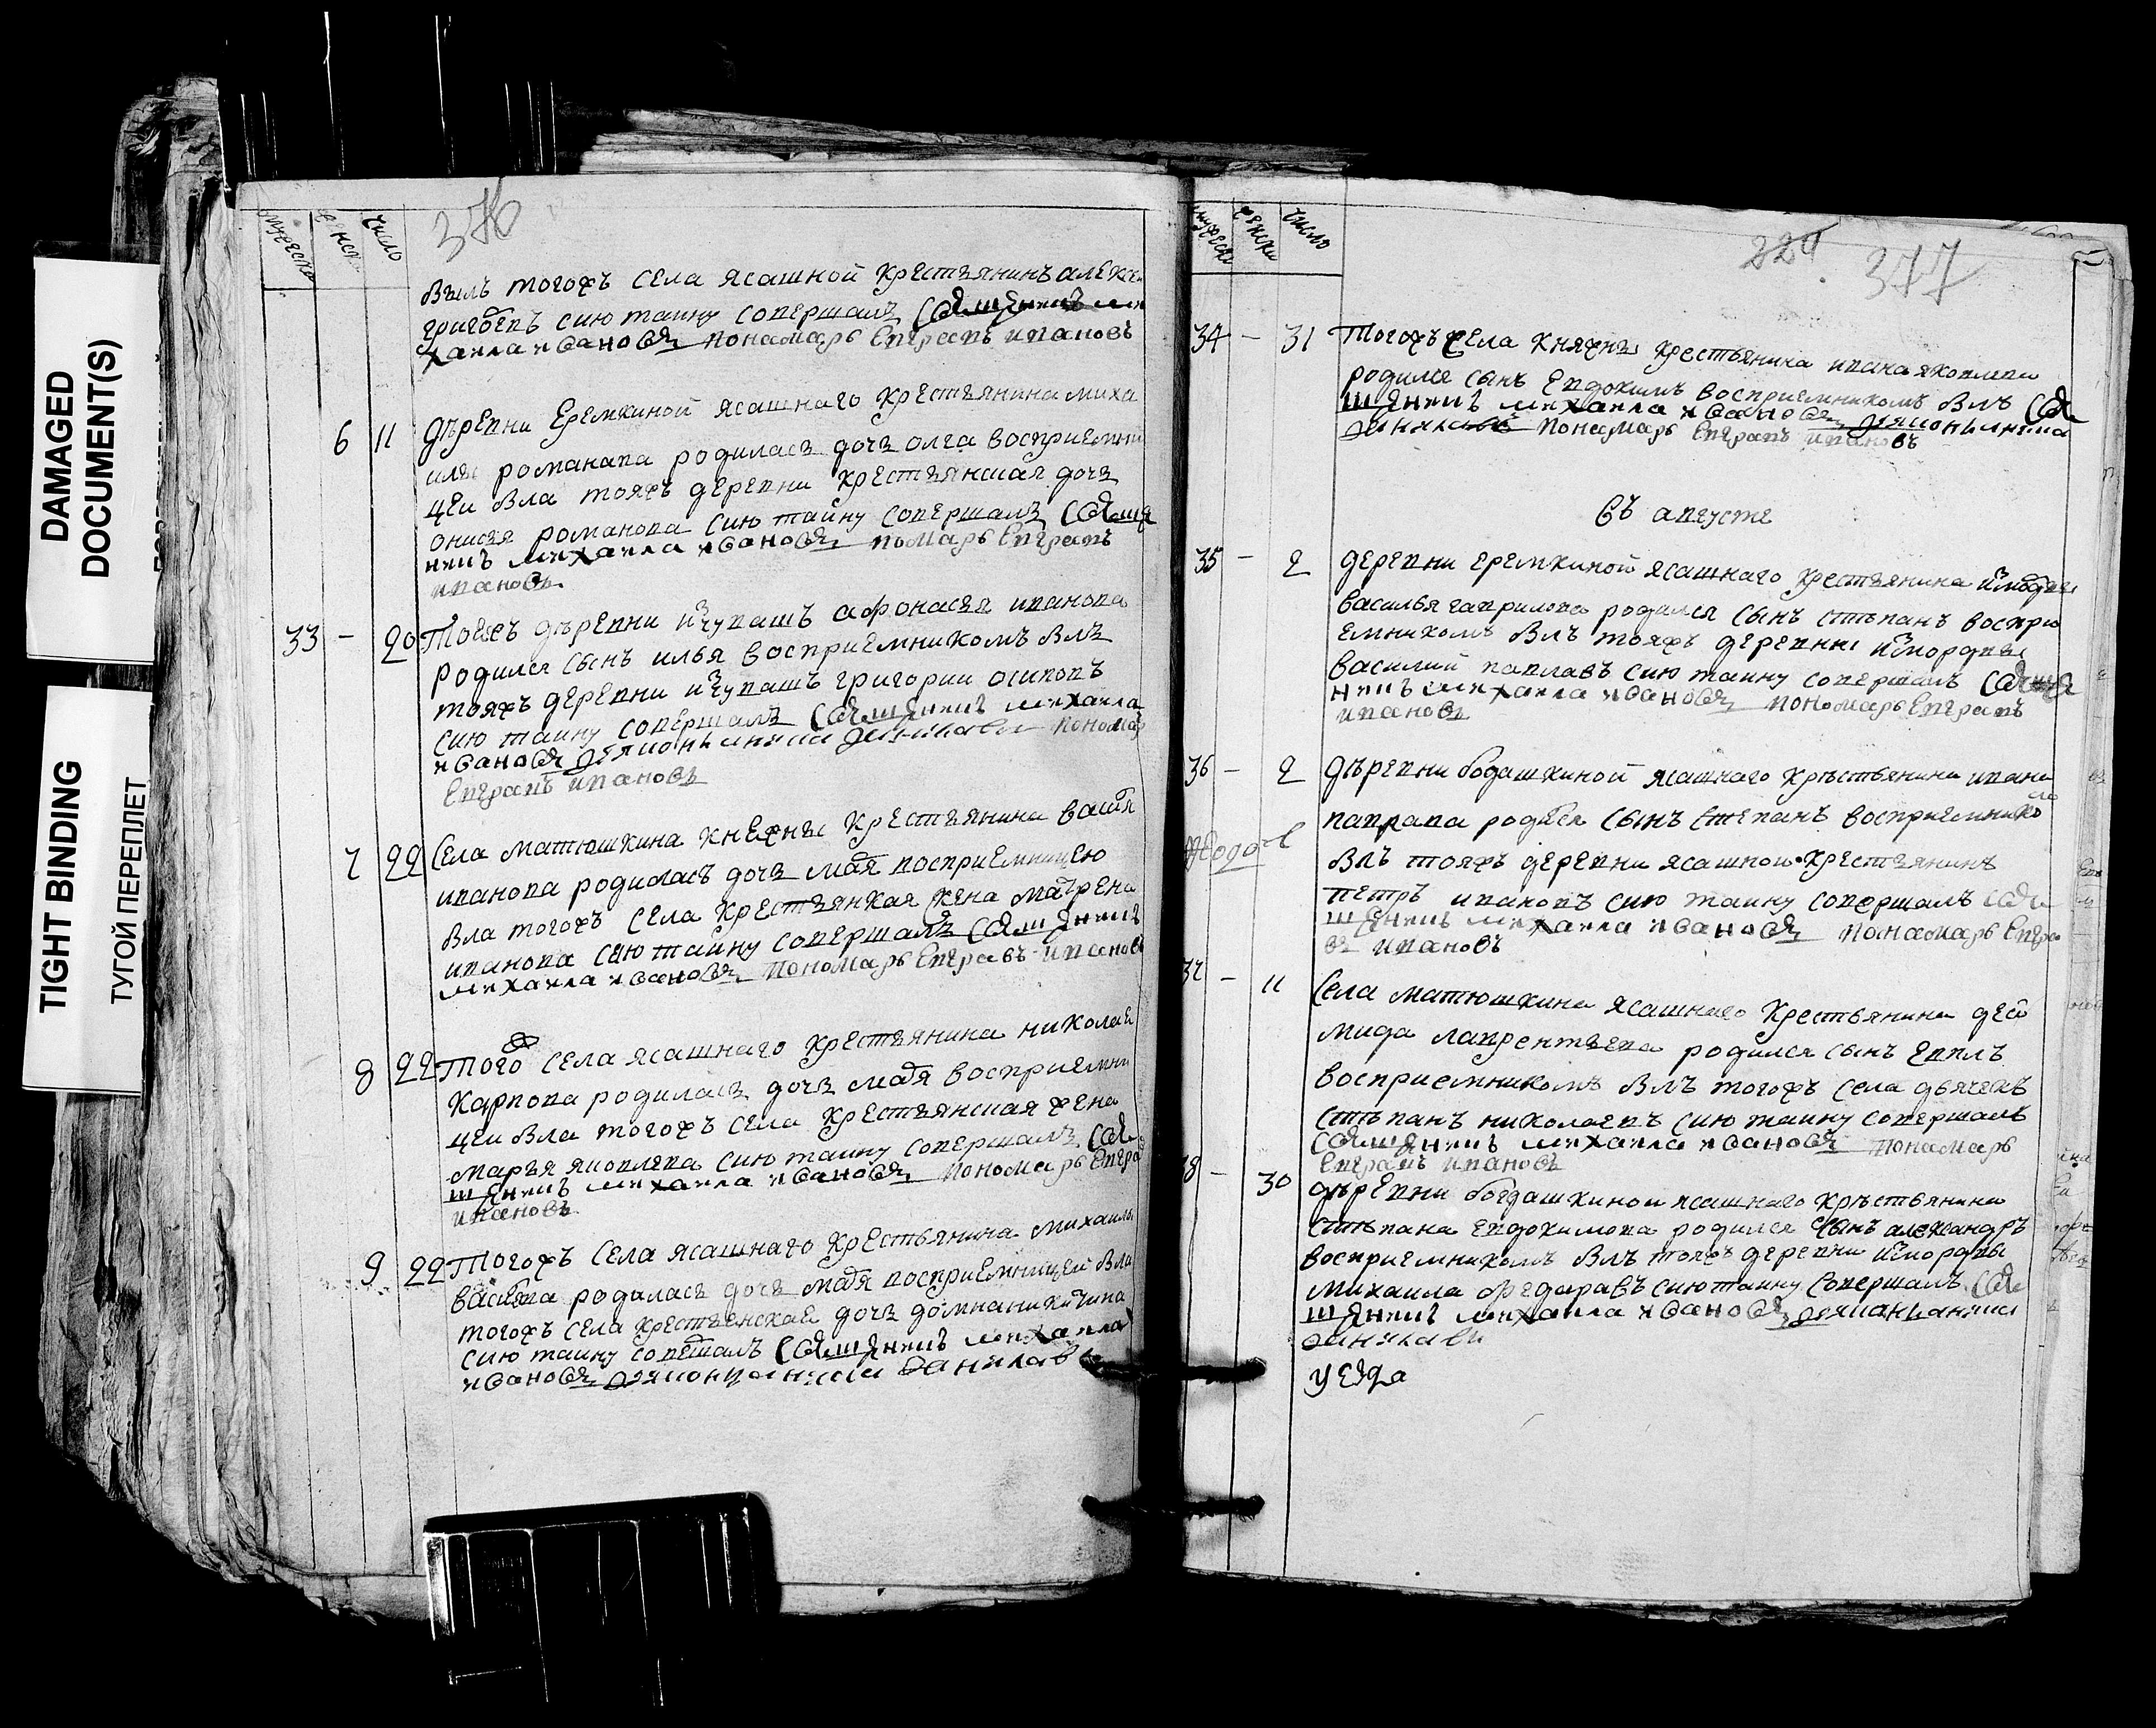 DAMAGED
DOCUMENT(S)
TIGHT BINDING
ТУГОЙ ПЕРЕПЛЕТ
мужеска женска число
376
былъ тогожъ села ясашной крестьянинъ алекси
григоевъ сию таину совершалъ священикъ ми
хаила ивановъ понамарь Евгравъ ивановъ
6 11 дѣревни Еремкиной ясашнаго крестьянина миха
илы романава родилась дочь олга восприемни
цеи была тояжъ деревни крестьянская дочь
онисья романова сию таину совершалъ свяще
никъ михаила ивановъ помарь Евгравъ
ивановъ
33 - 20 Тоежъ дѣревни изчувашъ афонасья иванова
родился сынъ илья восприемникомъ былъ
тояжъ деревни изчувашъ григории осиповъ
сию таину совершалъ священикъ михаила
ивановъ понамарь
Евгравъ ивановъ
7 22 Села матюшкина княжны крестьянина васил
иванова родилась дочь мария восприемницею
была тогожъ села крестьянкая жена матрена
иванова сию таину совершалъ священикъ
михаила ивановъ понамарь Евгравъ ивановъ
8 22 Того села ясашнаго крестьянина николая
карпова родилась дочь мария восприемни
цеи была тогожъ села крестьянская жена
марья яковлева сию таину совершалъ свя
щеникъ михаила ивановъ понамарь Евгра
ивановъ
9 22 Тогожъ села ясашнаго крестьянина михаилы
родилась дочь мария восприемницеи была
тогожъ села крестьянская дочь домна
сию таину совешалъ священикъ михаила
ивановъ данилавъ
мужеска женска число
377
34 - 31 Тогожъ села княжны крестьянина ивана яковлева
родился сынъ Евдокимъ восприемникомъ былъ свя
щеникъ михаила ивановъ
понамарь Евгравъ ивановъ
Въ августе
35 - 2 деревни еремкиной ясашнаго крестьянина измордвы
василья гаврилова родился сынъ стѣпанъ воспри
емникомъ былъ тояжъ деревни измордвы
василий павлавъ сию таину совершалъ свяще
никъ михаила ивановъ понамарь Евгравъ
ивановъ
36 - 2 дѣревни богдашкиной ясашнаго крѣстьянина ивана
родился сынъ степанъ восприемнико
былъ тояжъ деревни ясашнои крестьянинъ
петръ ивановъ сию таину совершалъ свя
щеникъ михаила ивановъ понамарь Евгра
въ ивановъ
37 - 11 Села матюшкина ясашнаго крестьянина део
мида лаврентьева родился сынъ
восприемникомъ былъ тогожъ села дьячекъ
стѣпанъ николаевъ сию таину совершалъ
священикъ михаила ивановъ понамарь
Евгравъ ивановъ
38 - 30 дѣревни богдашкинои ясашнаго крѣстьянина
стѣпана евдокимова родился сынъ александръ
восприемникомъ былъ тояжъ деревни измордвы
михаила федаравъ сию таину совершалъ свя
щеникъ михаила ивановъ
данилавъ
уезда